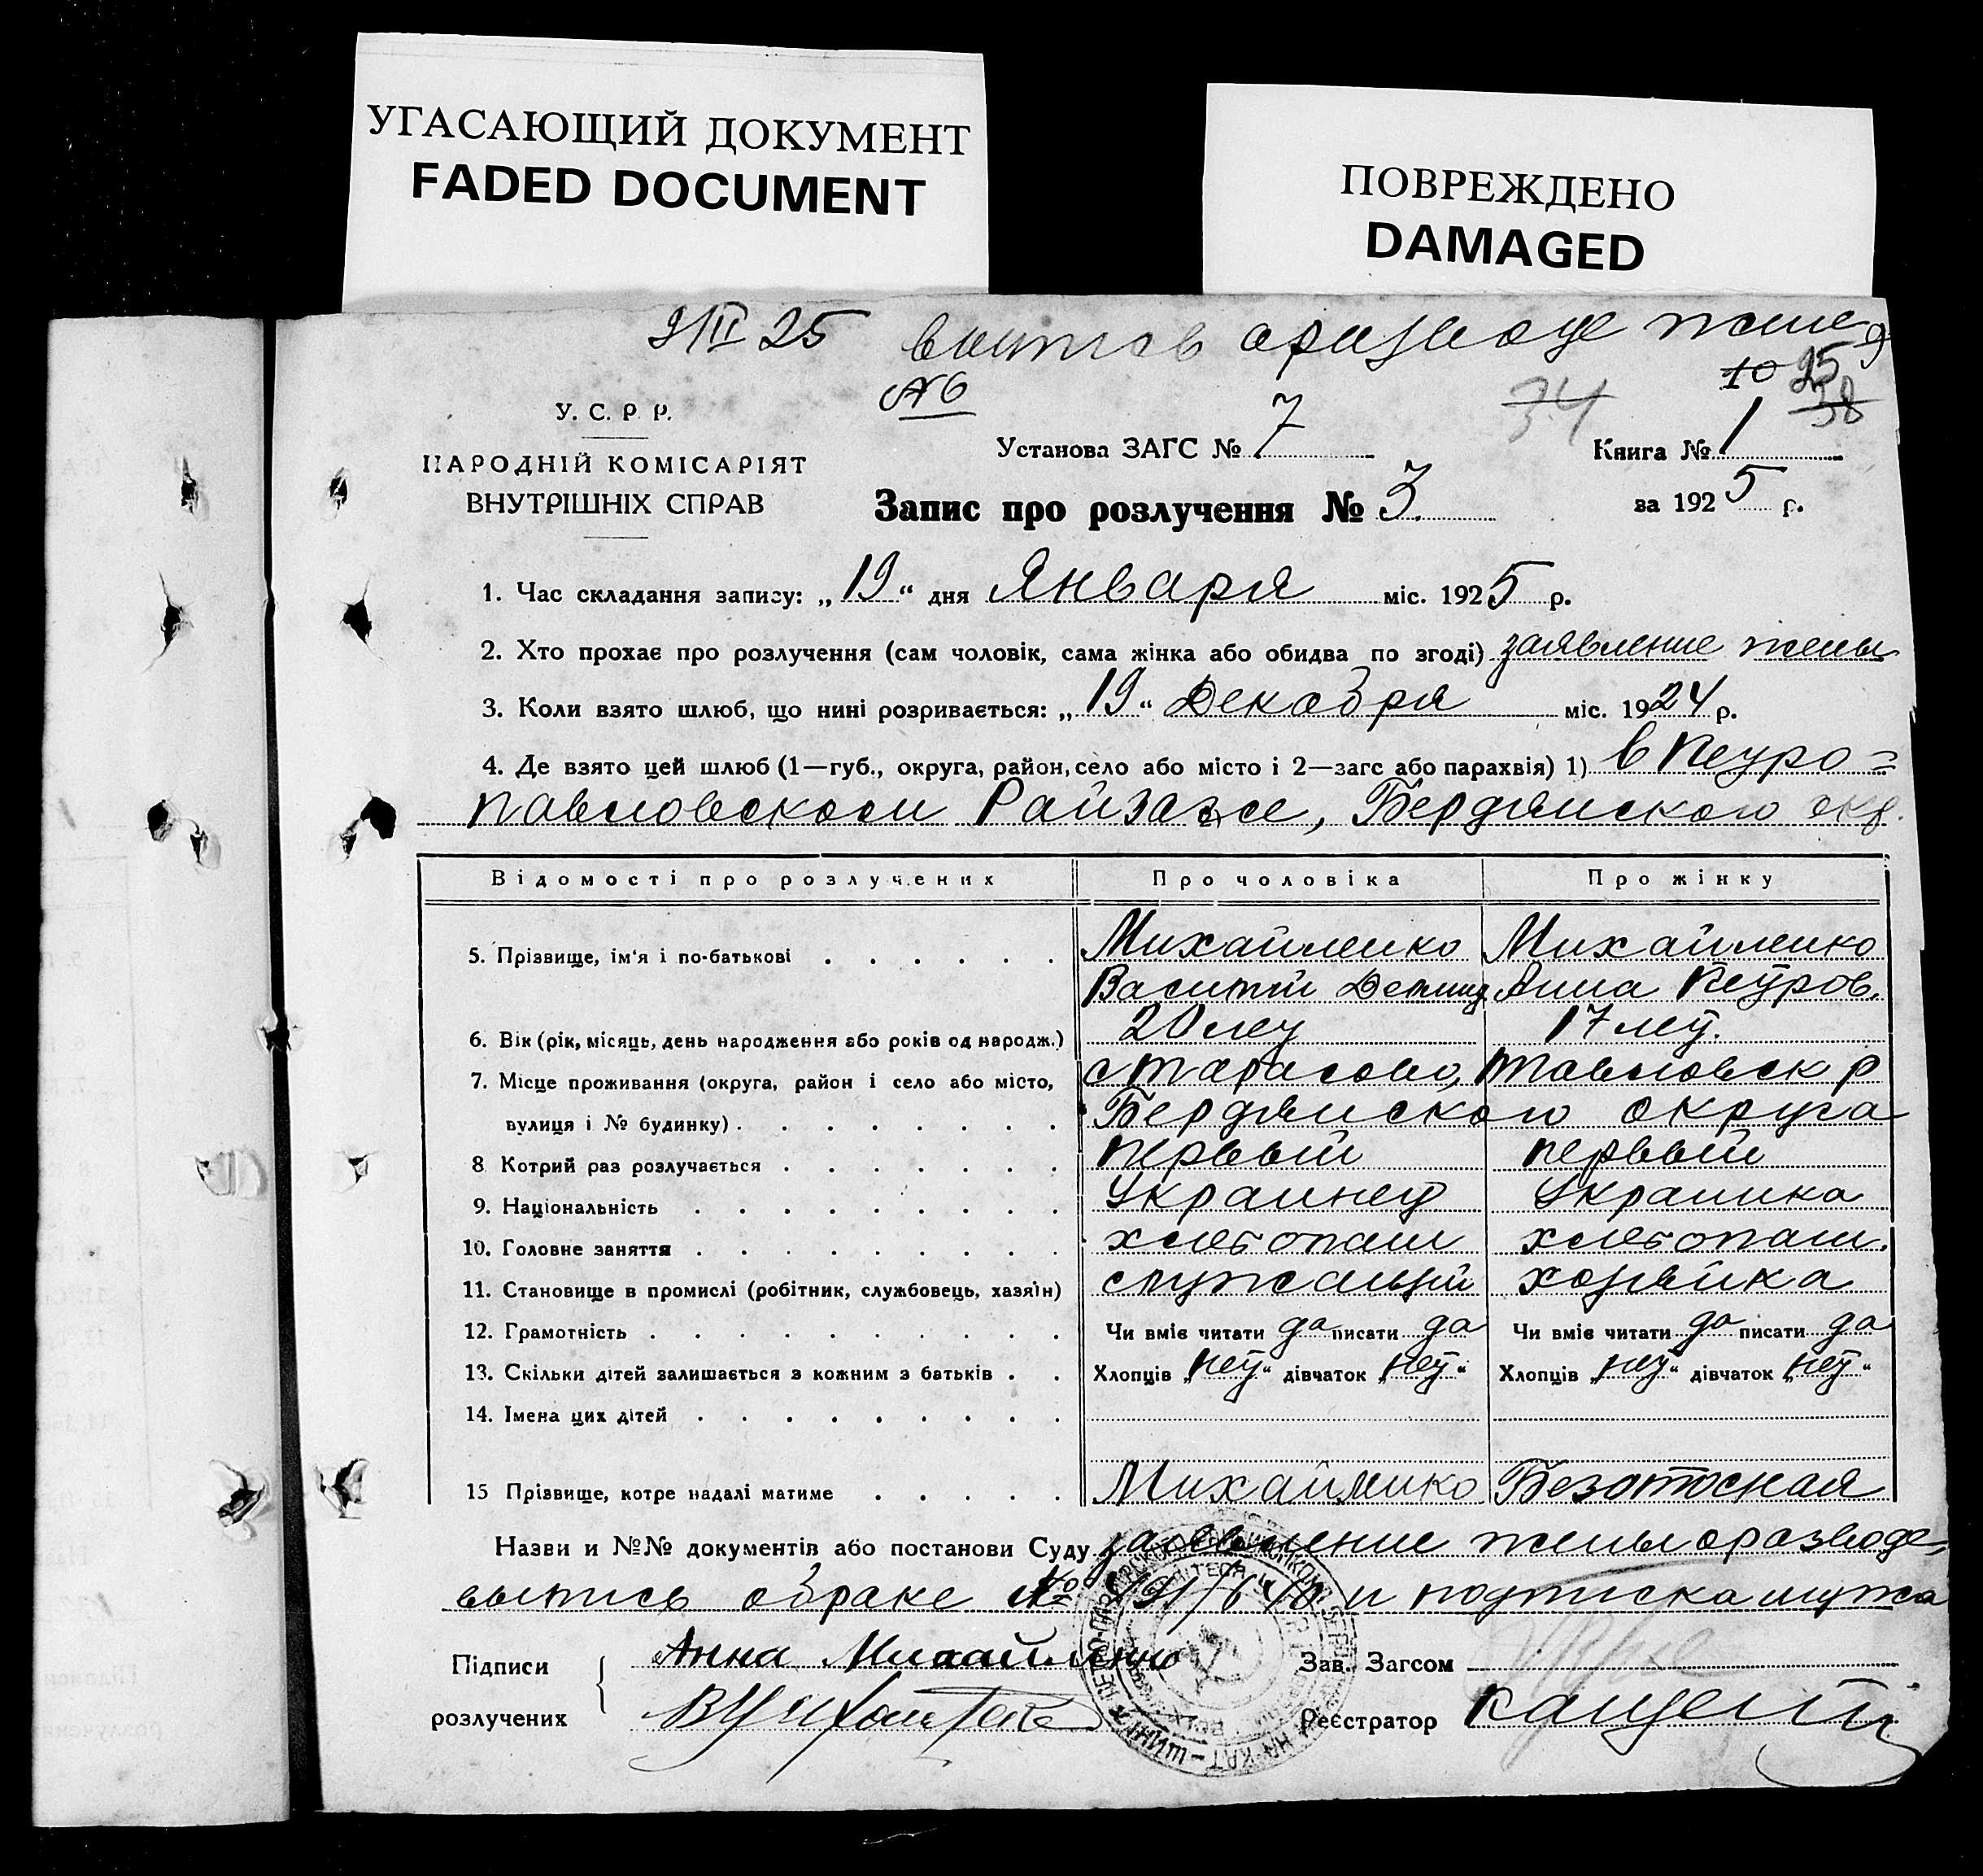 УГАСАЮЩИЙ ДОКУМЕНТ
FADED DOCUMENT
ПОВРЕЖДЕНО
DAMAGED
9/II 25 выпись о разводе жене
№6
10 25
34 38
У. С. Р. Р.
НАРОДНІЙ КОМІСАРІЯТ
ВНУТРІШНІХ СПРАВ
Установа ЗАГС № 7
Книга № 1
Запис про розлучення № 3
за 1925 р.
1. Час складання запису: „19“ дня Января міс. 1925 р.
2. Хто прохає про розлучення (сам чоловік, сама жінка або обидва по згоді) заявление жены
3. Коли взято шлюб, що нині розривається: „19“ Декабря міс. 1924 р.
4. Де взято цей шлюб (1—губ., округа, район, село або місто і 2—загс або парахвія) 1) в Петро=
павловском Райзагсе, Бердянского окр.
Відомості про розлучених Про чоловіка Про жінку
5. Прізвище, ім'я і по-батькові Михайленко Михайленко
Василий Анна Петров.
6. Вік (рік, місяць, день народження або років од народж.) 20 лет 17 лет.
7. Місце проживання (округа, район і село або місто, с Тарасово, Павловск р
вулиця і № будинку) Бердянского округа
8 Котрий раз розлучається первый первый
9. Національність Украинец Украинка
10. Головне заняття хлебопаш хлебопаш.
11. Становище в промислі (робітник, службовець, хазяїн) служащий хозяйка
12. Грамотність Чи вміє читати да писати да Чи вміє читати да писати да
13. Скільки дітей залишається з кожним з батьків Хлопців „нет“ дівчаток „нет“ Хлопців „нет“ дівчаток „нет“
14. Імена цих дітей
15 Прізвище, котре надалі матиме Михайленко Безотосная
Назви и №№ документів або постанови Суду заявление жены о разводе,
выпись о браке № и подписка мужа
Підписи Анна Михайленко Зав. Загсом
розлучених Реєстратор